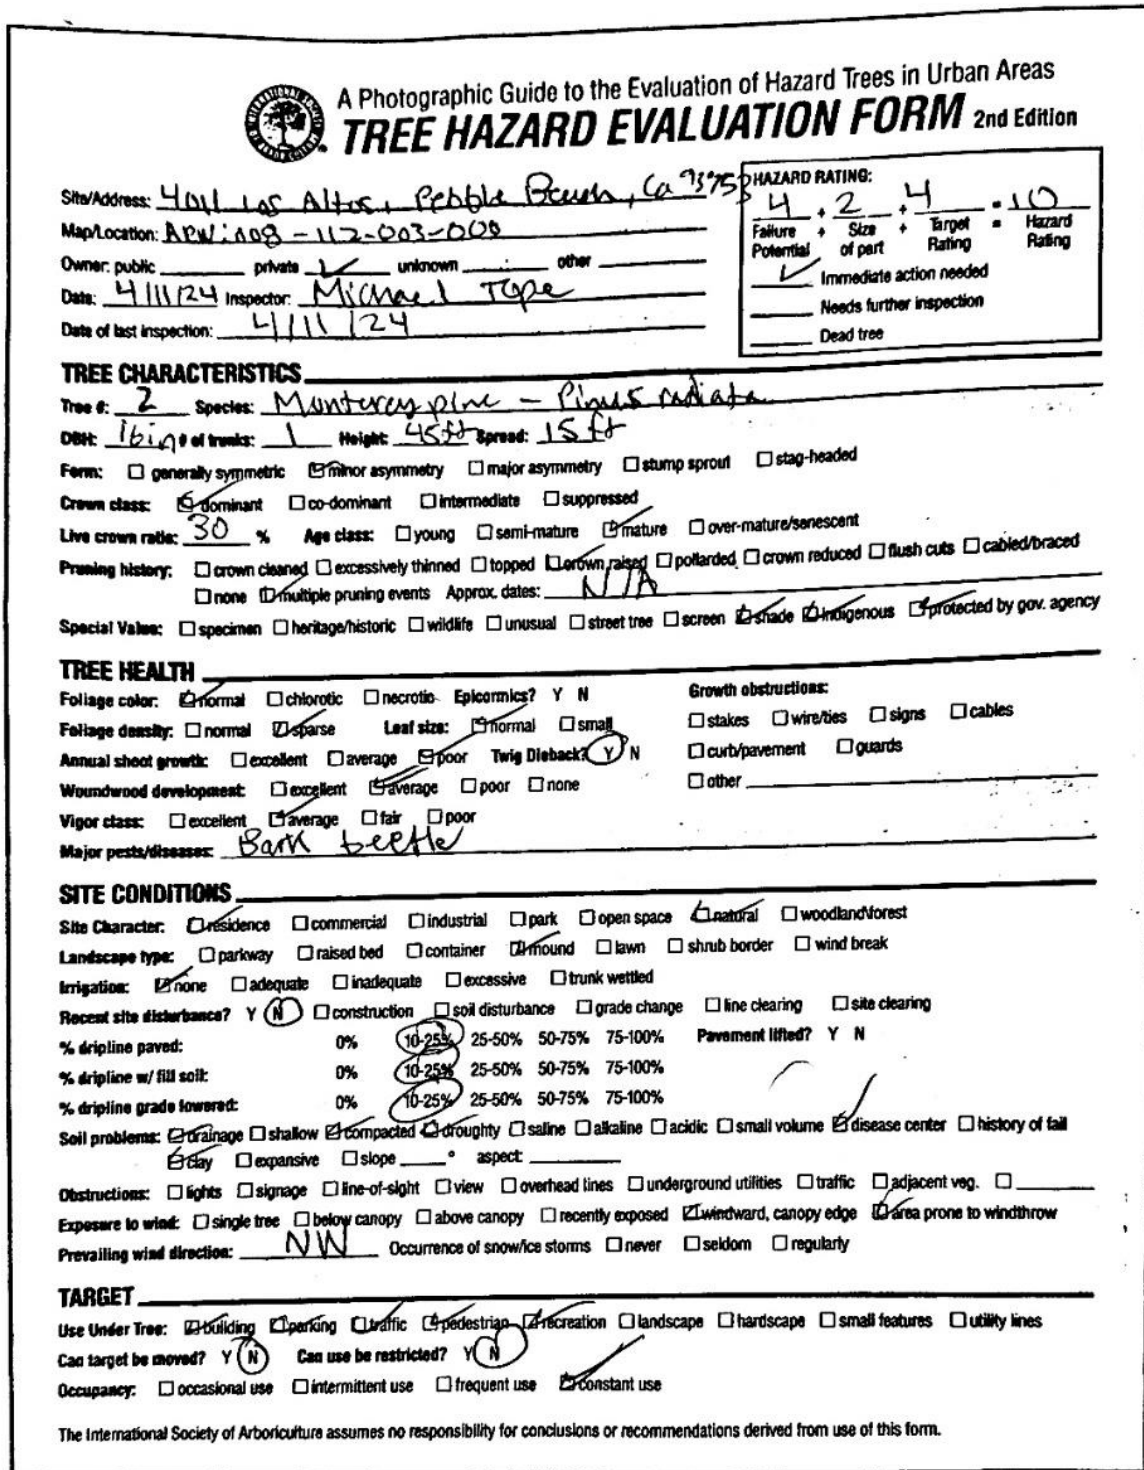 A Photographic Guide to the Evaluation of Hazard Trees in Urban Areas
TREE HAZARD EVALUATION FORM 2nd Edition
Site/Address: 4011 Los Altos, Pebble Beach, Ca 93953
Map/Location: APN: 008-112-003-000
Owner: public private ✓ unknown other
Date: 4/11/24 Inspector: Michael Tope
Date of last inspection: 4/11/24
HAZARD RATING:
4 + 2 + 4 = 10
Failure + Size + Target = Hazard
Potential of part Rating Rating
✓ Immediate action needed
Needs further inspection
Dead tree
TREE CHARACTERISTICS
Tree #: 2 Species: Monterey pine - Pinus radiata
DBH: 16in # of trunks: 1 Height: 45ft Spread: 15ft
Form: ☐ generally symmetric ☑ minor asymmetry ☐ major asymmetry ☐ stump sprout ☐ stag-headed
Crown class: ☑ dominant ☐ co-dominant ☐ intermediate ☐ suppressed
Live crown ratio: 30 % Age class: ☐ young ☐ semi-mature ☑ mature ☐ over-mature/senescent
Pruning history: ☐ crown cleaned ☐ excessively thinned ☐ topped ☑ crown raised ☐ pollarded ☐ crown reduced ☐ flush cuts ☐ cabled/braced
☐ none ☑ multiple pruning events Approx. dates: N/A
Special Value: ☐ specimen ☐ heritage/historic ☐ wildlife ☐ unusual ☐ street tree ☐ screen ☑ shade ☑ indigenous ☑ protected by gov. agency
TREE HEALTH
Foliage color: ☑ normal ☐ chlorotic ☐ necrotic Epicormics? Y N
Foliage density: ☐ normal ☑ sparse Leaf size: ☑ normal ☐ small
Annual shoot growth: ☐ excellent ☐ average ☑ poor Twig Dieback? Y N
Woundwood development: ☐ excellent ☑ average ☐ poor ☐ none
Vigor class: ☐ excellent ☑ average ☐ fair ☐ poor
Major pests/diseases: Bark beetle
Growth obstructions:
☐ stakes ☐ wire/ties ☐ signs ☐ cables
☐ curb/pavement ☐ guards
☐ other
SITE CONDITIONS
Site Character: ☑ residence ☐ commercial ☐ industrial ☐ park ☐ open space ☑ natural ☐ woodland\forest
Landscape type: ☐ parkway ☐ raised bed ☐ container ☑ mound ☐ lawn ☐ shrub border ☐ wind break
Irrigation: ☑ none ☐ adequate ☐ inadequate ☐ excessive ☐ trunk wettled
Recent site disturbance? Y N ☐ construction ☐ soil disturbance ☐ grade change ☐ line clearing ☐ site clearing
% dripline paved: 0% 10-25% 25-50% 50-75% 75-100% Pavement lifted? Y N
% dripline w/ fill soil: 0% 10-25% 25-50% 50-75% 75-100%
% dripline grade lowered: 0% 10-25% 25-50% 50-75% 75-100%
Soil problems: ☑ drainage ☐ shallow ☑ compacted ☑ droughty ☐ saline ☐ alkaline ☐ acidic ☐ small volume ☑ disease center ☐ history of fail
☑ clay ☐ expansive ☐ slope ° aspect:
Obstructions: ☐ lights ☐ signage ☐ line-of-sight ☐ view ☐ overhead lines ☐ underground utilities ☐ traffic ☐ adjacent veg. ☐
Exposure to wind: ☐ single tree ☐ below canopy ☐ above canopy ☐ recently exposed ☑ windward, canopy edge ☑ area prone to windthrow
Prevailing wind direction: NW Occurrence of snow/ice storms ☐ never ☐ seldom ☐ regularly
TARGET
Use Under Tree: ☑ building ☑ parking ☑ traffic ☑ pedestrian ☑ recreation ☐ landscape ☐ hardscape ☐ small features ☐ utility lines
Can target be moved? Y N Can use be restricted? Y N
Occupancy: ☐ occasional use ☐ intermittent use ☐ frequent use ☑ constant use
The International Society of Arboriculture assumes no responsibility for conclusions or recommendations derived from use of this form.